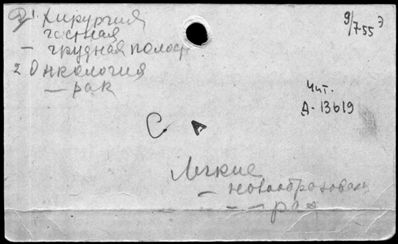 1. Хирургия
частная
– грудная полост
2 Онкология
– рак
9/755 Э
Чит.
Д-13619
С А
Легкие
– новообразован
– – рак